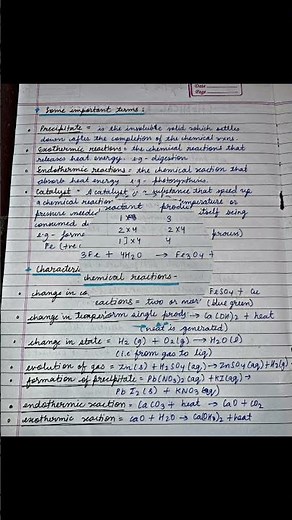 Date
Page
Some important terms :
Precipitate = is the insoluble solid which settles
down after the completion of the chemical rxns.
Exothermic reactions = the chemical reactions that
releases heat energy. e.g - digestion
Endothermic reactions = the chemical reaction that
absorb heat energy e.g - photosynthesis.
Catalyst = A catalyst is a substance that speed up
a chemical reaction temperature or
reactant product
pressure needed itself being
1 3
consumed d
2 x 4 2 x 4
e.g - forms process)
1 ] x 4 4
Fe (+ve
3Fe + 4H2O → Fe3O4 +
Characteri
chemical reactions -
change in co FeSO4 + Cu
eactions = two or mor (blue green)
change in temp form single prod → Ca(OH)2 + heat
(heat is generated)
change in state = H2(g) + O2(g) → H2O(l)
(i.e from gas to liq)
evolution of gas = Zn(s) + H2SO4(aq) → ZnSO4(aq) + H2(g)
formation of precipitate = Pb(NO3)2(aq) + KI(aq) →
PbI2(s) + KNO3(aq)
endothermic reaction = CaCO3 + heat → CaO + CO2
exothermic reaction = CaO + H2O → Ca(OH)2 + heat